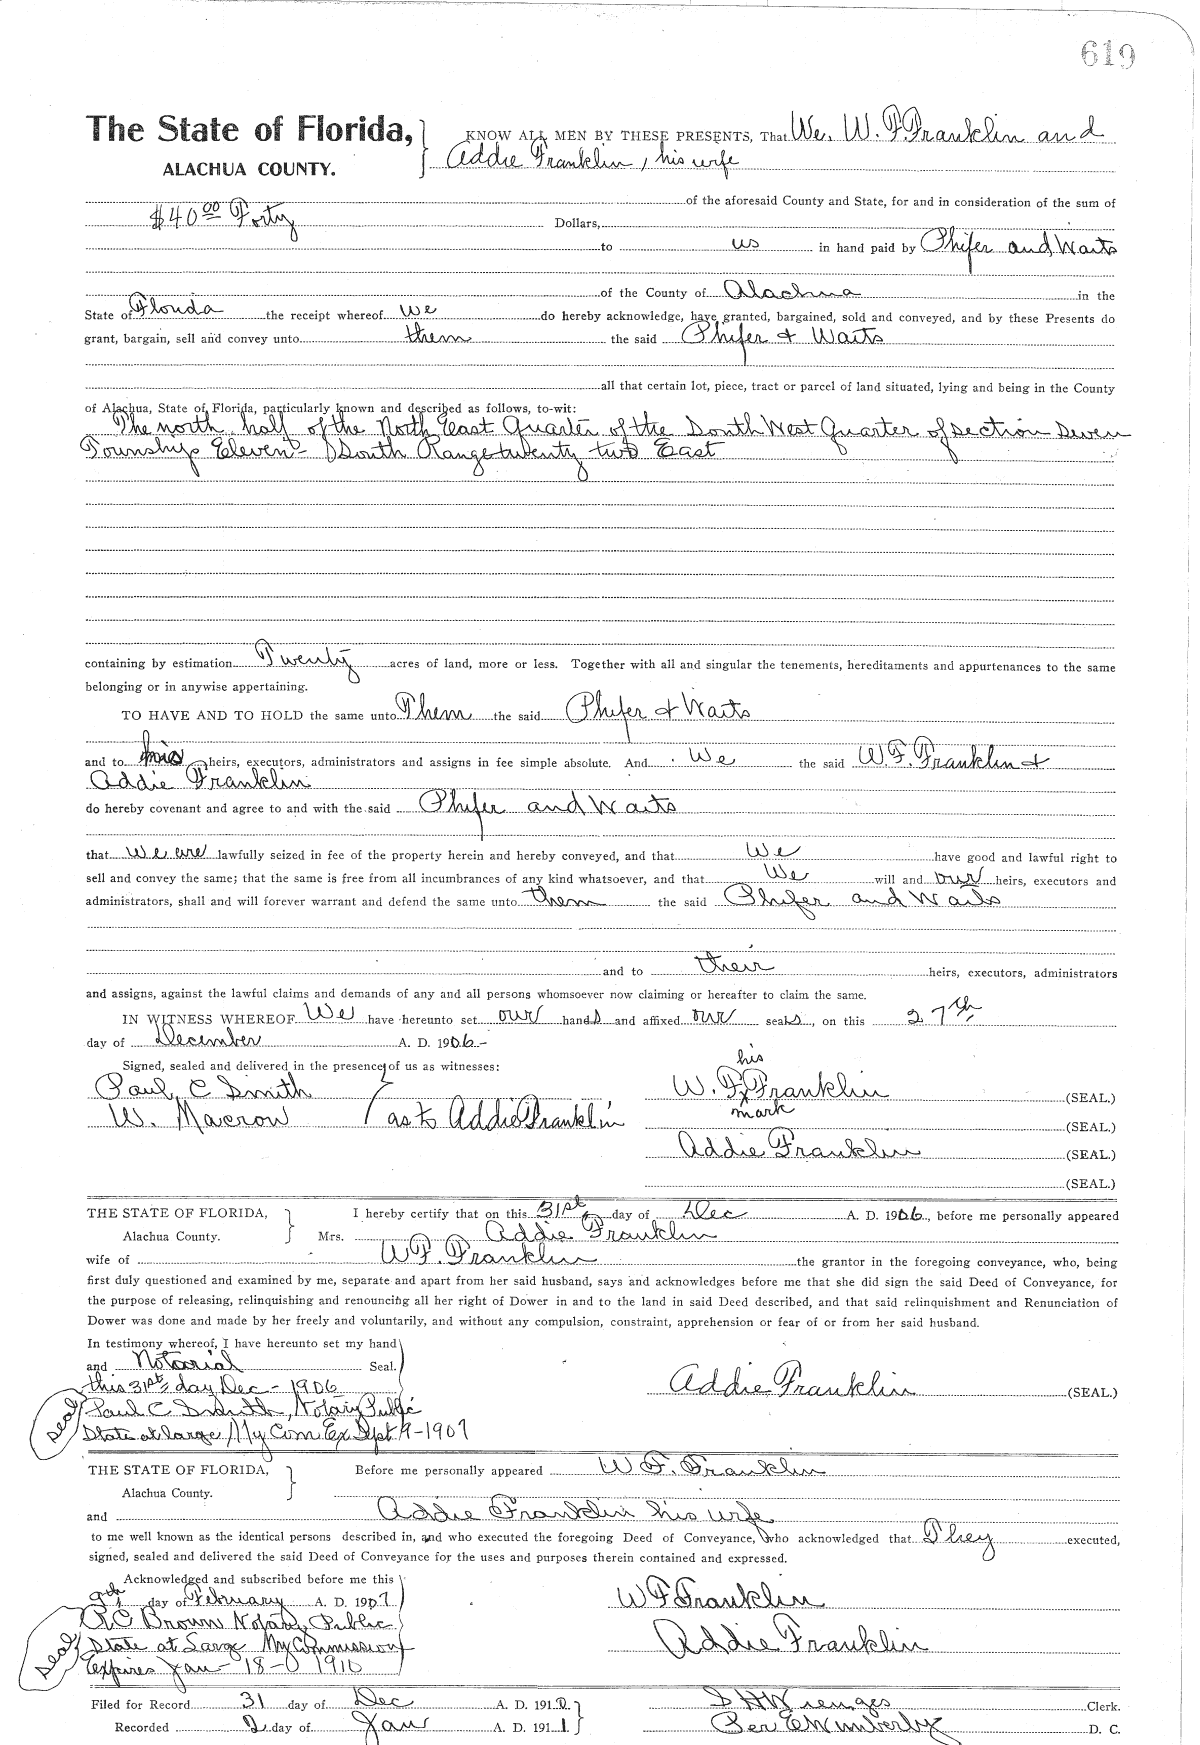 619
The State of Florida, KNOW ALL MEN BY THESE PRESENTS, That We, W. F. Franklin and
ALACHUA COUNTY. Addie Franklin, his wife
of the aforesaid County and State, for and in consideration of the sum of
$40.00 Forty Dollars,
to us in hand paid by Phifer and Waits
of the County of Alachua in the
State of Florida the receipt whereof we do hereby acknowledge, have granted, bargained, sold and conveyed, and by these Presents do
grant, bargain, sell and convey unto them the said Phifer & Waits
all that certain lot, piece, tract or parcel of land situated, lying and being in the County
of Alachua, State of Florida, particularly known and described as follows, to-wit:
The north half of the North East Quarter of the South West Quarter of section Seven
Township Eleven South Range twenty two East
containing by estimation Twenty acres of land, more or less. Together with all and singular the tenements, hereditaments and appurtenances to the same
belonging or in anywise appertaining.
TO HAVE AND TO HOLD the same unto Them the said Phifer & Waits
and to his heirs, executors, administrators and assigns in fee simple absolute. And We the said W. F. Franklin &
Addie Franklin
do hereby covenant and agree to and with the said Phifer and Waits
that we are lawfully seized in fee of the property herein and hereby conveyed, and that We have good and lawful right to
sell and convey the same; that the same is free from all incumbrances of any kind whatsoever, and that We will and our heirs, executors and
administrators, shall and will forever warrant and defend the same unto them the said Phifer and Waits
and to their heirs, executors, administrators
and assigns, against the lawful claims and demands of any and all persons whomsoever now claiming or hereafter to claim the same.
IN WITNESS WHEREOF We have hereunto set our hands and affixed our seals, on this 27th
day of December A. D. 1906-
Signed, sealed and delivered in the presence of us as witnesses: his
Paul C Smith W. F. x Franklin (SEAL.)
W. Macrow as to Addie Franklin mark (SEAL.)
Addie Franklin (SEAL.)
(SEAL.)
THE STATE OF FLORIDA, I hereby certify that on this 31st day of Dec A. D. 1906, before me personally appeared
Alachua County. Mrs. Addie Franklin
wife of W F. Franklin the grantor in the foregoing conveyance, who, being
first duly questioned and examined by me, separate and apart from her said husband, says and acknowledges before me that she did sign the said Deed of Conveyance, for
the purpose of releasing, relinquishing and renouncing all her right of Dower in and to the land in said Deed described, and that said relinquishment and Renunciation of
Dower was done and made by her freely and voluntarily, and without any compulsion, constraint, apprehension or fear of or from her said husband.
In testimony whereof, I have hereunto set my hand
and Notarial Seal.
this 31st day Dec - 1906 Addie Franklin (SEAL.)
seal Paul C Smith, Notary Public
State at large My Com Ex Sept 9-1907
THE STATE OF FLORIDA, Before me personally appeared W F. Franklin
Alachua County.
and Addie Franklin his wife
to me well known as the identical persons described in, and who executed the foregoing Deed of Conveyance, who acknowledged that They executed,
signed, sealed and delivered the said Deed of Conveyance for the uses and purposes therein contained and expressed.
Acknowledged and subscribed before me this
9th day of February A. D. 1907 W F Franklin
Brown Notary Public
seal State at Large My Commission Addie Franklin
Expires Jan - 18 - 1910
Filed for Record 31 day of Dec A. D. 1910 S H Wienges Clerk.
Recorded 2 day of Jan A. D. 1911 Per E Wimberly D. C.